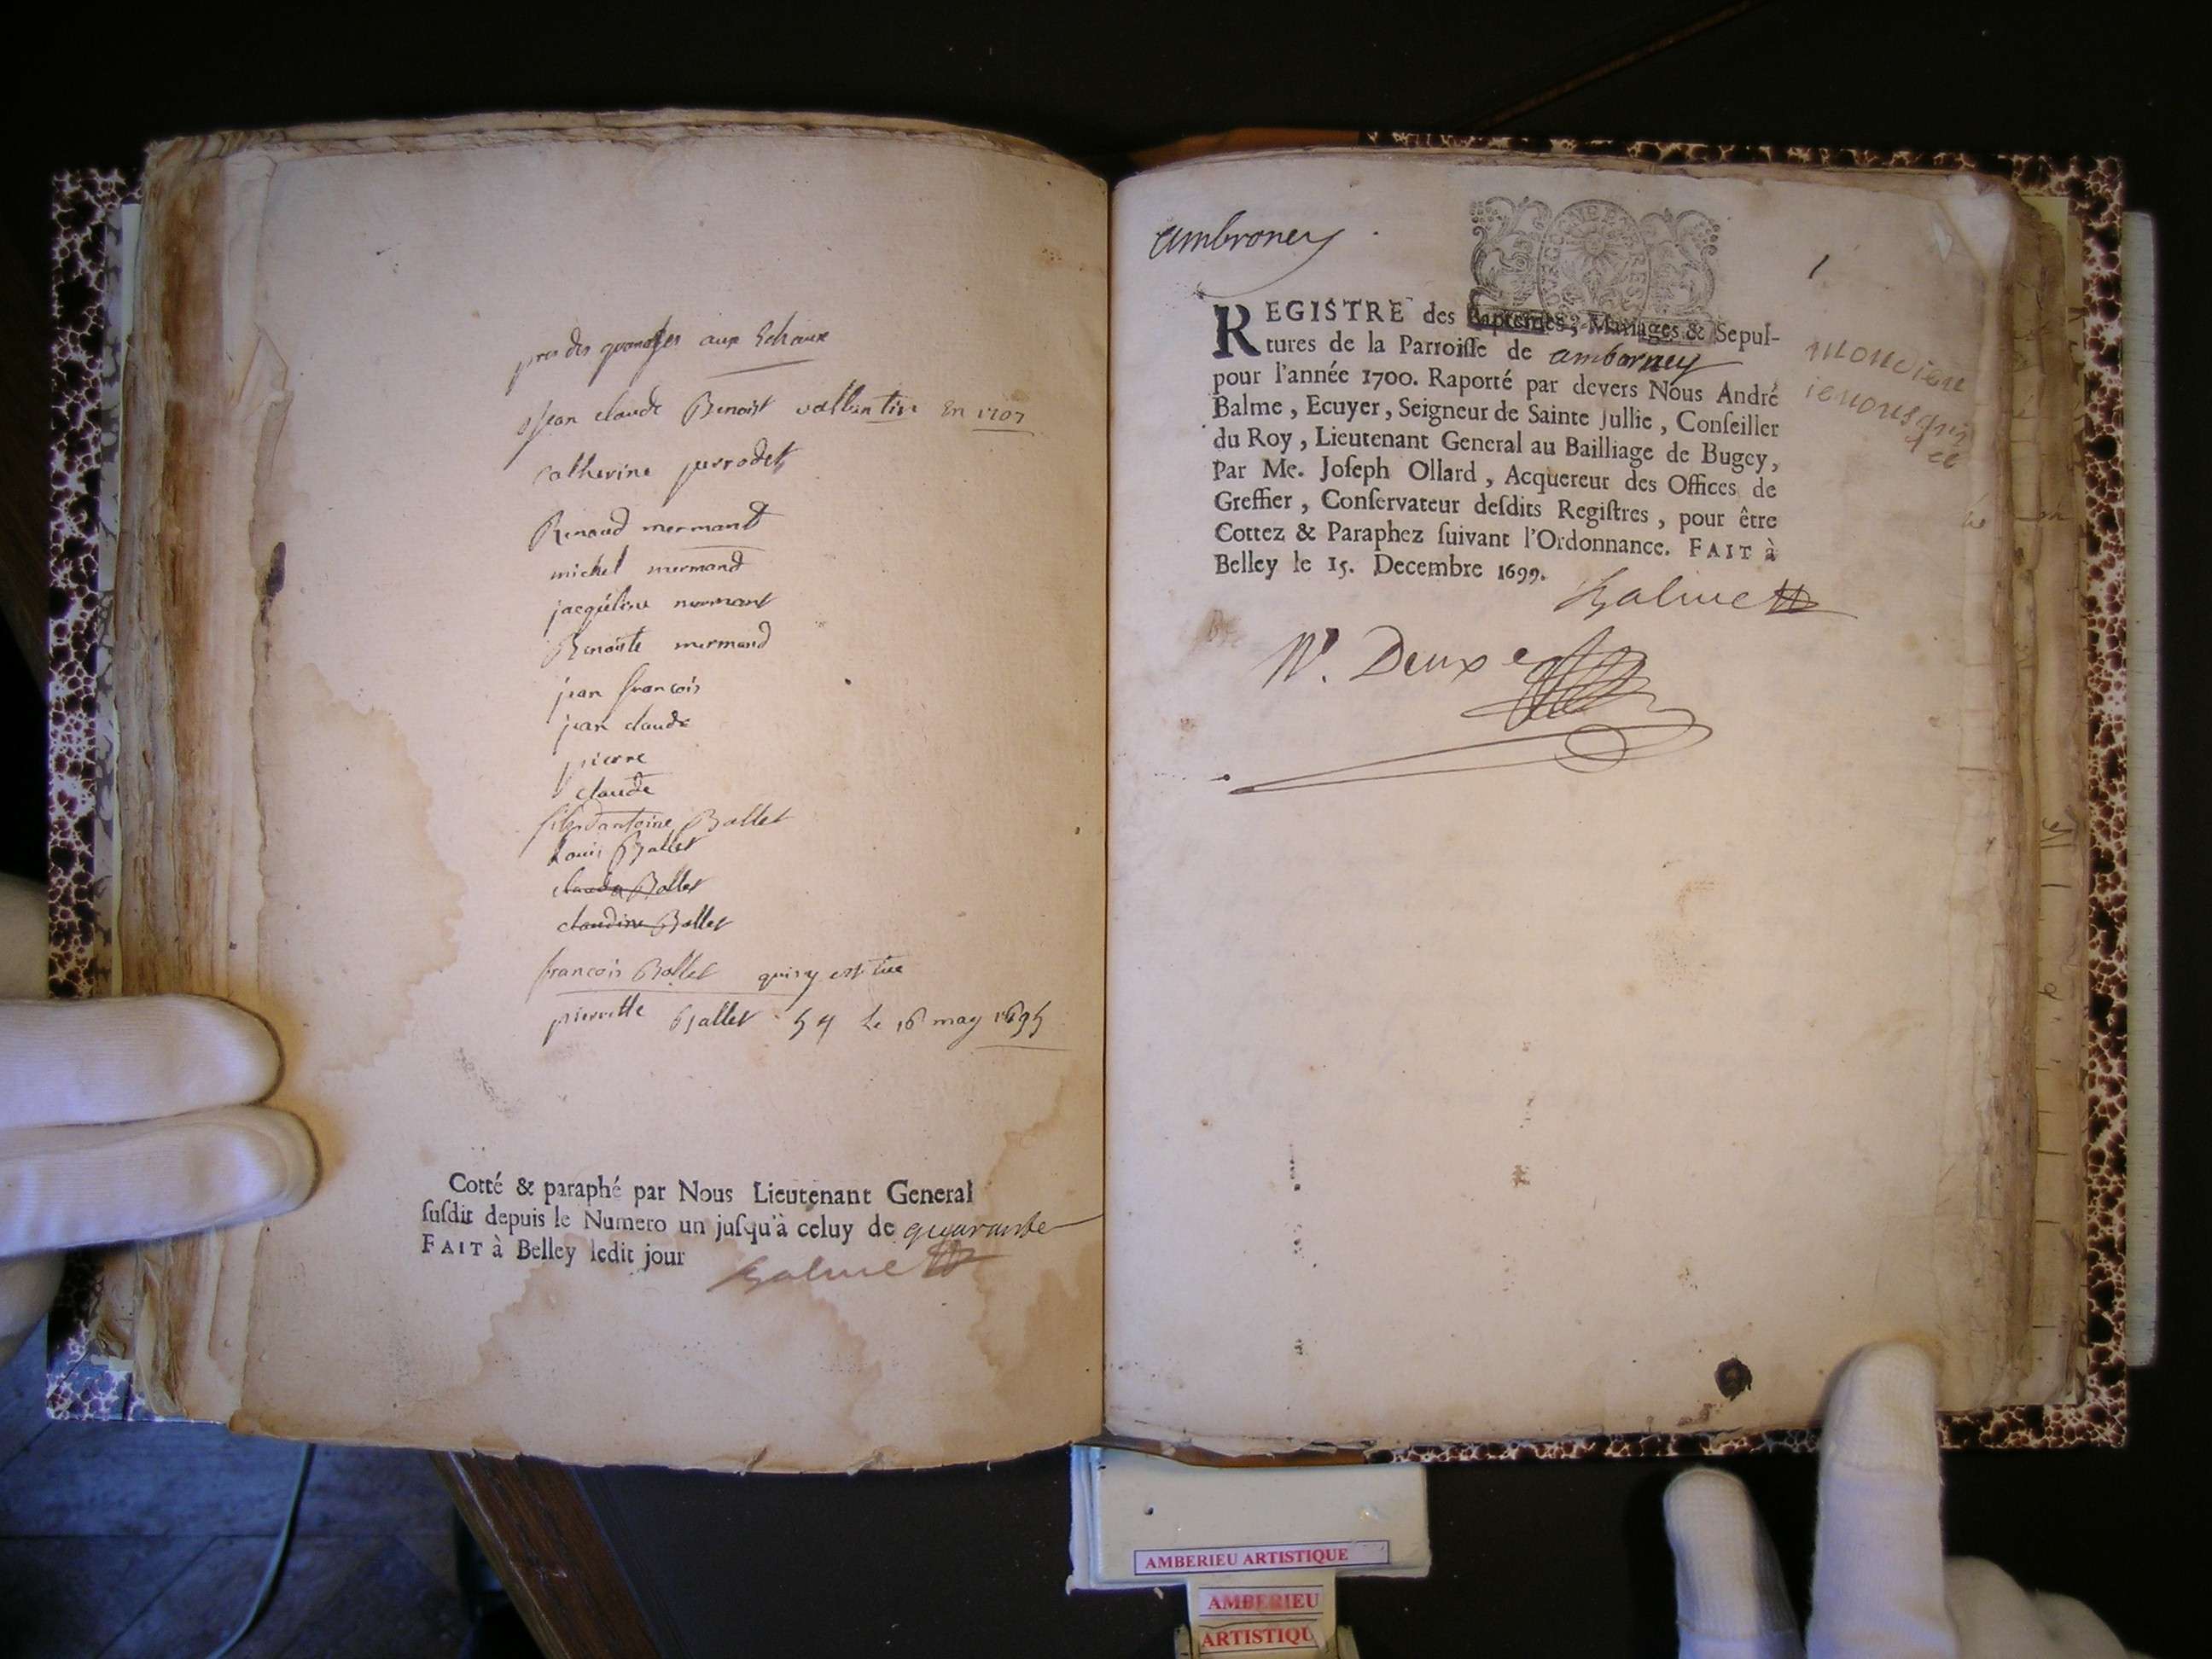 pres des granges aux Echaux
jean claude Benoist vallentin En 1707
catherine perrodet
Renaud mermand
michel mermand
jacqueline mermant
Benoiste mermand
jean francois
jean claude
pierre
claude
fils dantoine Ballet
Louis Ballet
claude Ballet
claudine Ballet
francois Ballet qui y est tue
pierrette Ballet le 16 may 1695
Cotté & paraphé par Nous Lieutenant General
ſuſdit depuis le Numero un juſqu'à celuy de quarante
FAIT à Belley ledit jour
Balme
ambroney
1
REGISTRE des Baptemes, Mariages & Sepul-
tures de la Parroiſſe de amborney
pour l'année 1700. Raporté par devers Nous André
Balme, Ecuyer, Seigneur de Sainte Jullie, Conſeiller
du Roy, Lieutenant General au Bailliage de Bugey,
Par Me. Joſeph Ollard, Acquereur des Offices de
Greffier, Conſervateur deſdits Regiſtres, pour être
Cottez & Paraphez ſuivant l'Ordonnance. FAIT à
Belley le 15. Decembre 1699.
Balme
N. Deux
AMBERIEU ARTISTIQUE
AMBERIEU
ARTISTIQU